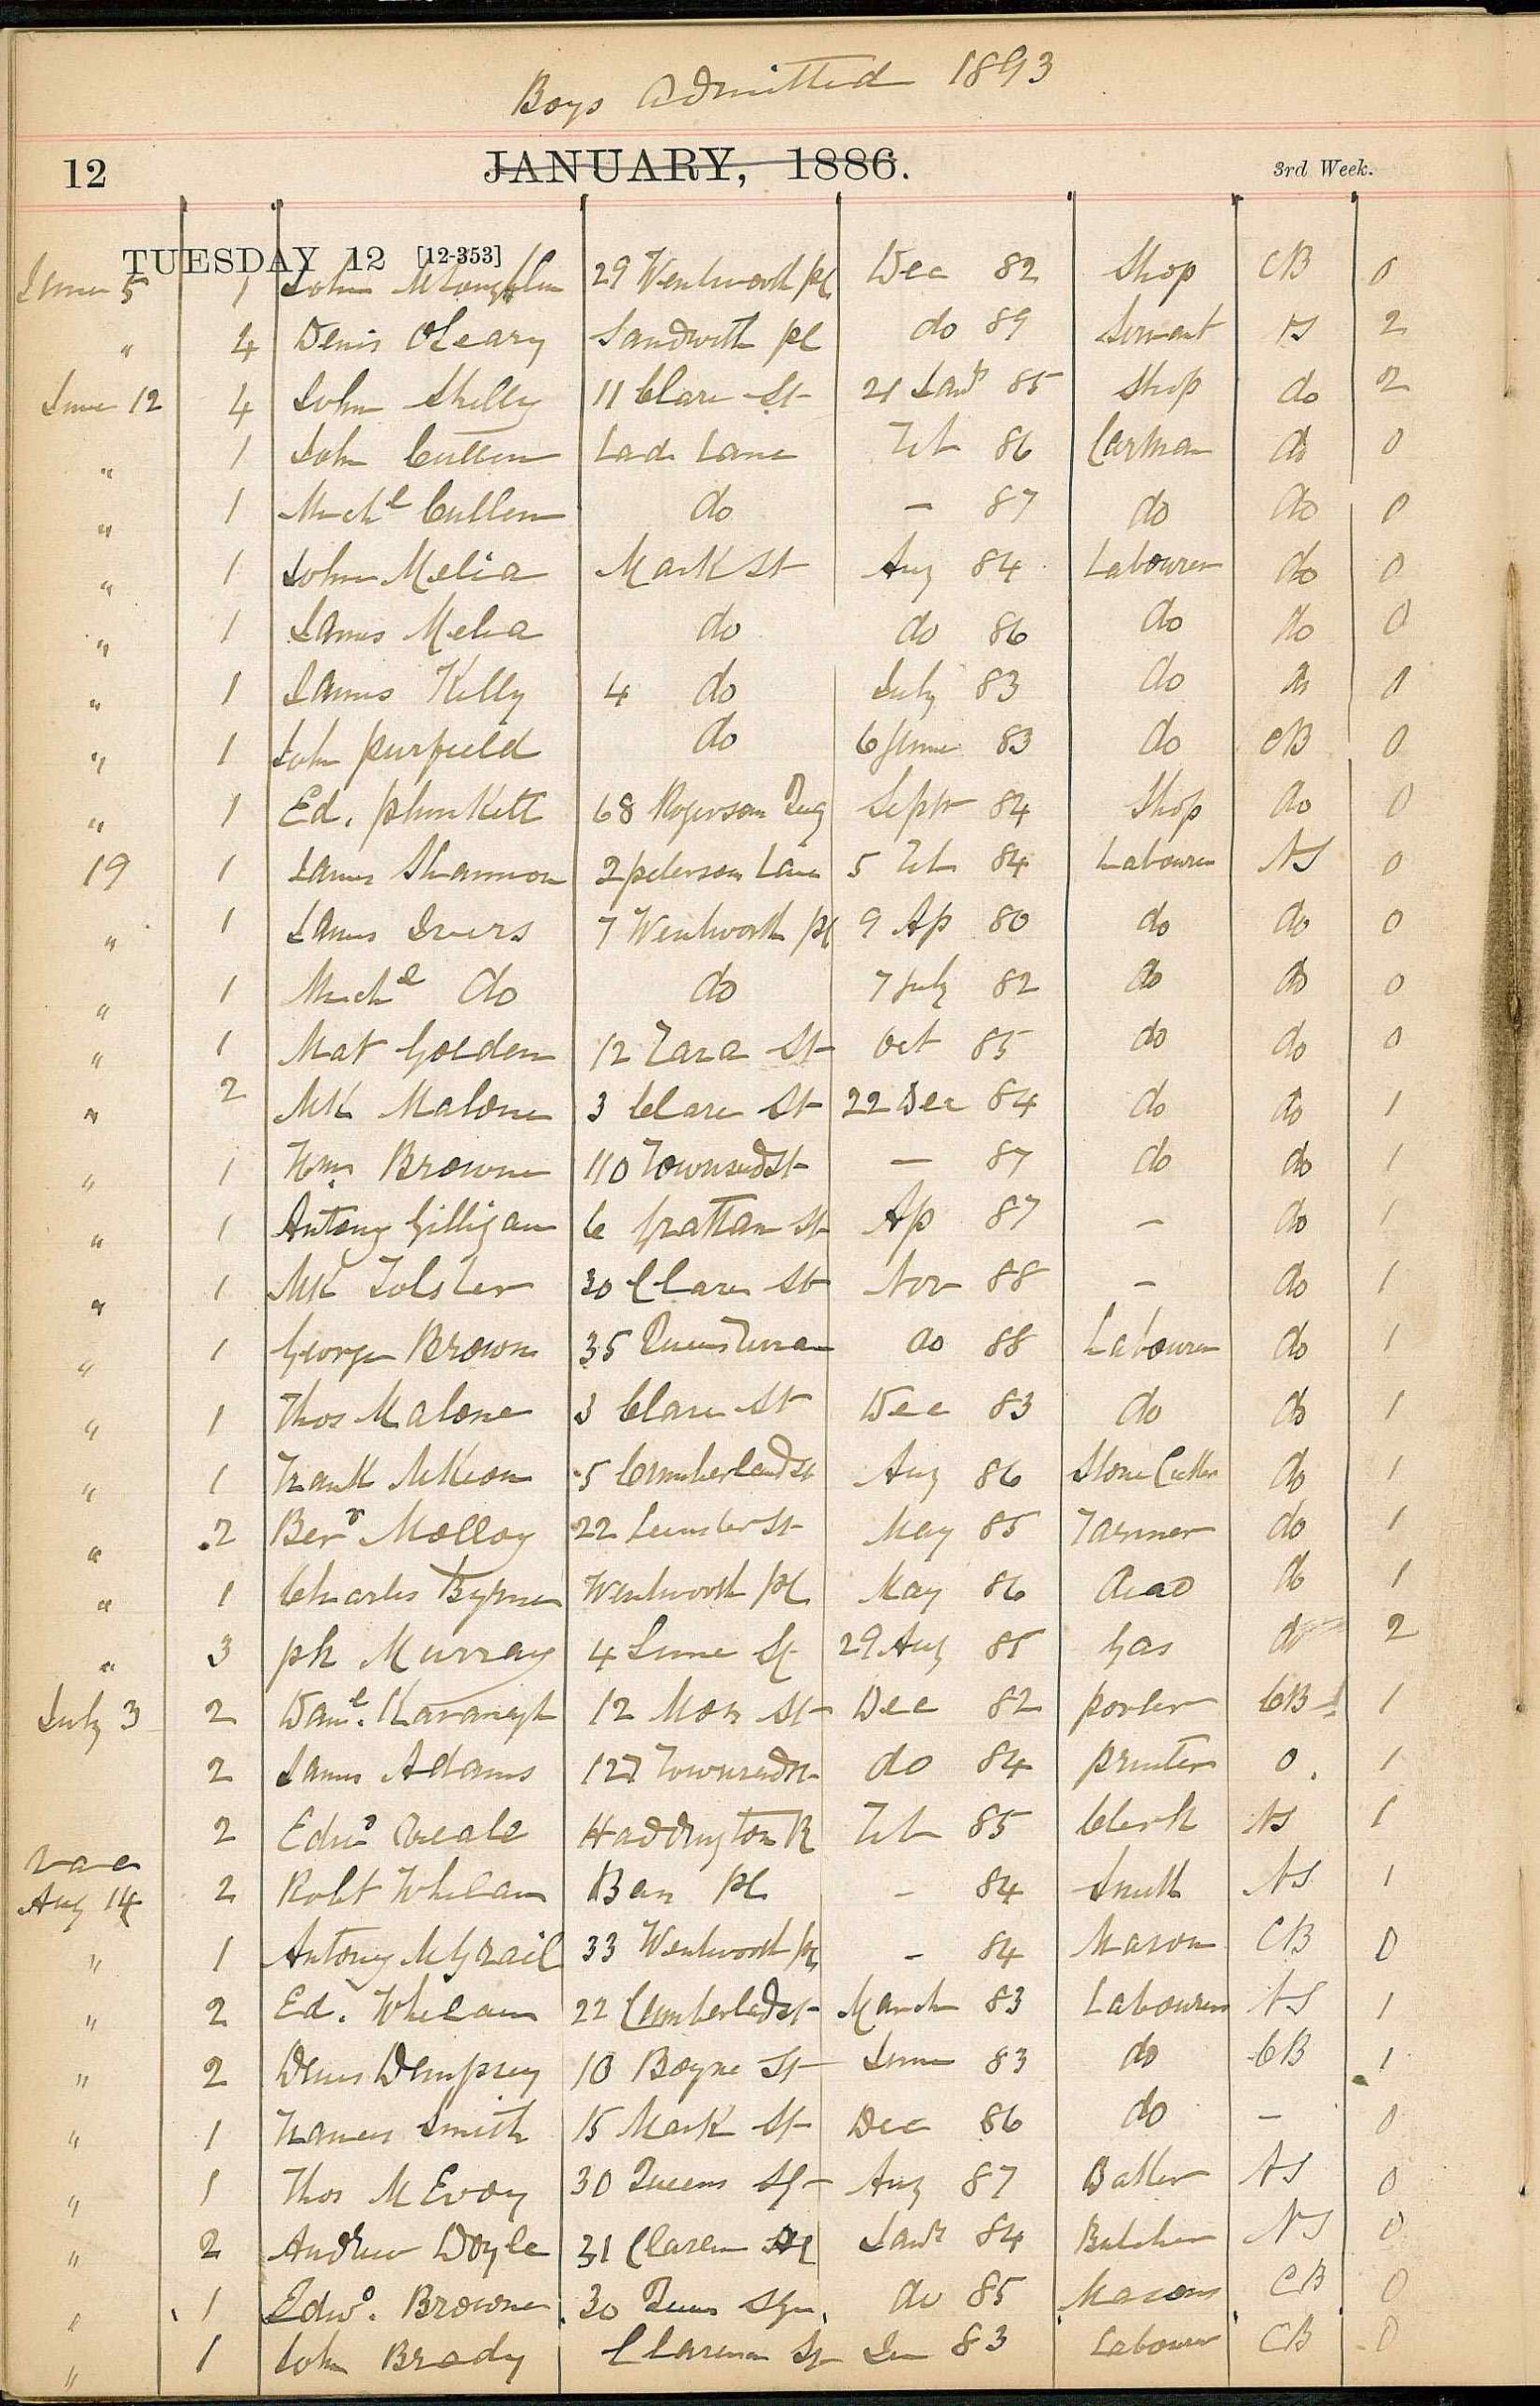 Boys admitted 1893
12 JANUARY, 1886. 3rd Week.
TUESDAY 12 [12-353]
June 5 1 John McLoughlin 29 Wentworth pl Dec 82 Shop CB 0
" 4 Denis O'Leary Sandwith pl do 89 Servant NS 2
June 12 4 John Skelly 11 Clare St 21 Jany 85 Shop do 2
" 1 John Cullen Lad Lane Feb 86 Carman do 0
" 1 Michl Cullen do – 87 do do 0
" 1 John Melia Mark St Aug 84 Labourer do 0
" 1 James Melia do do 86 do do 0
" 1 James Kelly 4 do July 83 do do 0
" 1 John purfield do 6 June 83 do CB 0
" 1 Ed. plunkett 68 Rogerson Quy Sept 84 Shop do 0
19 1 James Shannon 2 peterson Lane 5 Feb 84 Labourer NS 0
" 1 James Ivers 7 Wentworth pl 9 Ap 80 do do 0
" 1 Michl do do 7 July 82 do do 0
" 1 Mat Golden 12 Tara St Oct 85 do do 0
" 2 MK Malone 3 Clare St 22 Dec 84 do do 1
" 1 Wm Browne 110 Townsedst – 87 do do 1
" 1 Antony Gilligan 6 Grattan St Ap 87 – do 1
" 1 MK Tolster 30 Clare St Nov 88 – do 1
" 1 George Brown 35 Queens do 88 Labourer do 1
" 1 Thos Malone 3 Clare St Dec 83 do do 1
" 1 Frank McKeon 5 Cumberland st Aug 86 Stone Cutter do 1
" 2 Berd Molloy 22 Leinster St May 85 Farmer do 1
" 1 Charles Byrne Wentworth pl May 86 dead do 1
" 3 ph Murray 4 Lime St 29 Aug 85 Gas do 2
July 3 2 Danl. Kavanagh 12 Moss St Dec 82 porter CB 1
2 James Adams 127 Townsend st do 84 printer 0. 1
2 Edwd Beale Haddington R Feb 85 Clerk NS 1
vac
Aug 14 2 Robt Whelan Ban pl – 84 Smith NS 1
" 1 Antony McGrail 33 Wentworth pl – 84 Mason CB 0
" 2 Ed. Whelan 22 Cumberland st March 83 Labourer NS 1
" 2 Denis Dempsey 10 Boyne St June 83 do CB 1
" 1 Francis Smith 15 Mark St Dec 86 do – 0
" 1 Thos McEvoy 30 Queens Sq Aug 87 Baker NS 0
" 2 Andrew Doyle 31 Claren pl Jany 84 Butcher NS 0
" 1 Edwd. Browne 30 Queens Squ. do 85 Masons CB 0
" 1 John Brady Claren St 83 Labourer CB 0